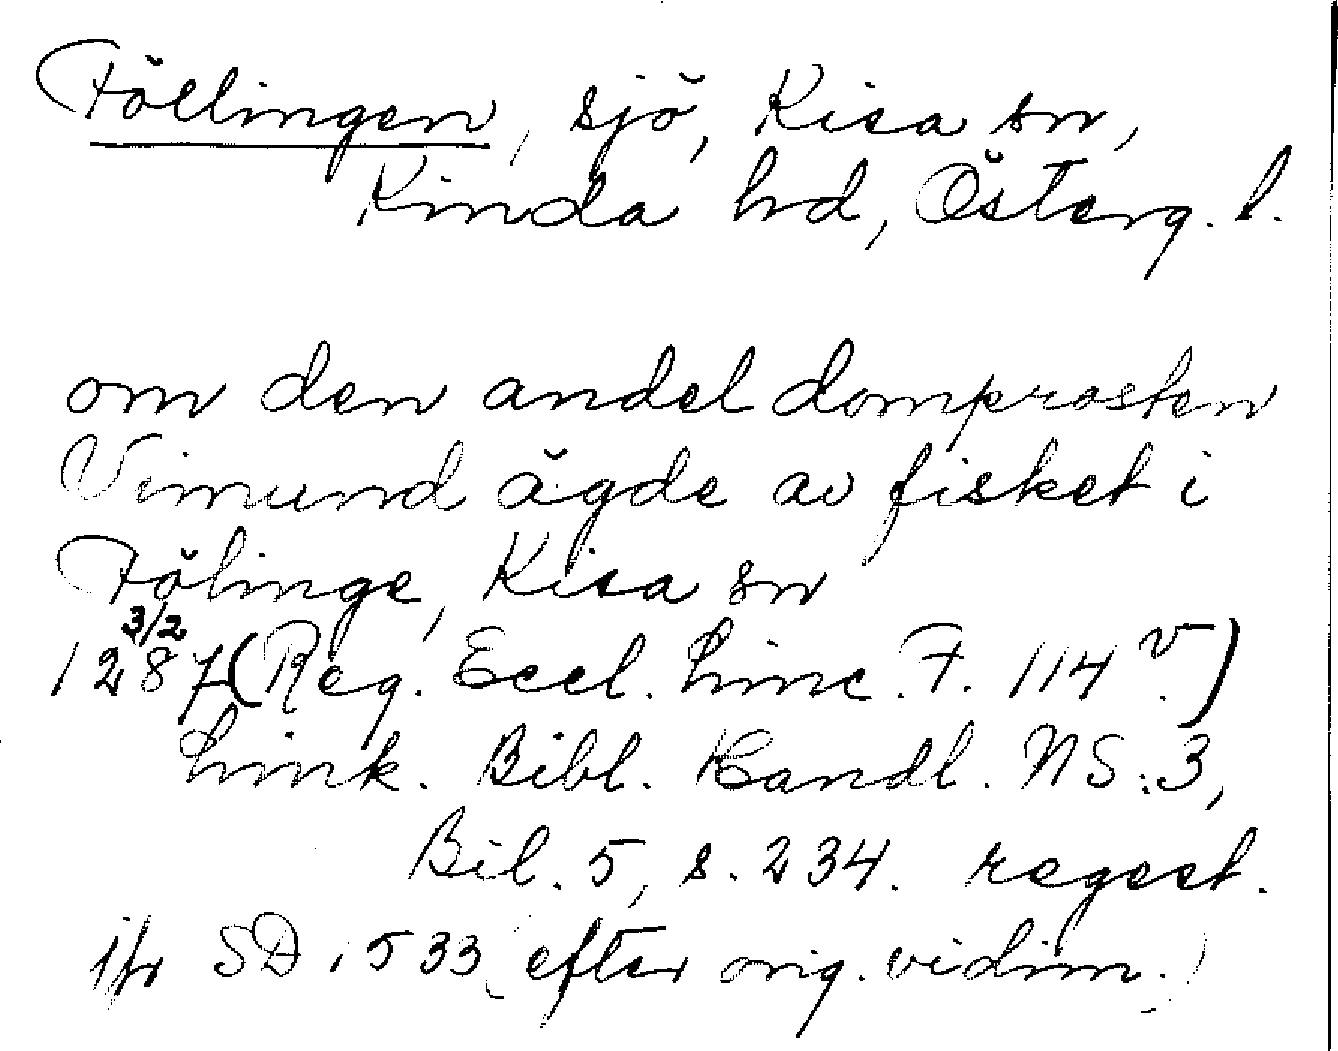 Föllingen, sjö, Kisa sn,
Kinda hd, Österg. l.
om den andel domprosten
Vimund ägde av fisket i
Fölinge, Kisa sn
3/2
1287 (Reg. Eccl. Linc. F. 114 v.)
Link. Bibl. Handl. NS:3,
Bil. 5, s. 234. regest.
jfr SD 1533 (efter orig. vidim.)